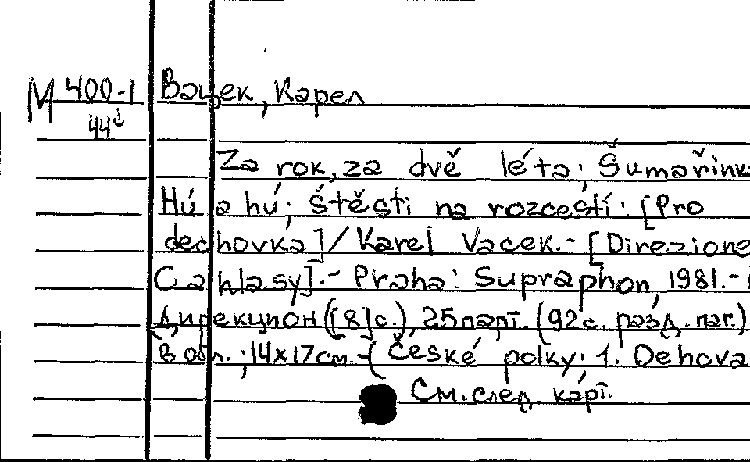 М 400-1 Вацек, Карел
44
Za rok, za dvě léta; Šumařink
Hú a hú; Štěstí na rozcestí: [Pro
dechovka] / Karel Vacek.- [Direzione
C a hlasy].- Praha: Supraphon, 1981.-
Дирекцион ([8]с.), 25 парт. (92 с. разд. паг.)
в обл.; 14x17см.-( České polky; 1. Dehova
См. след. карт.